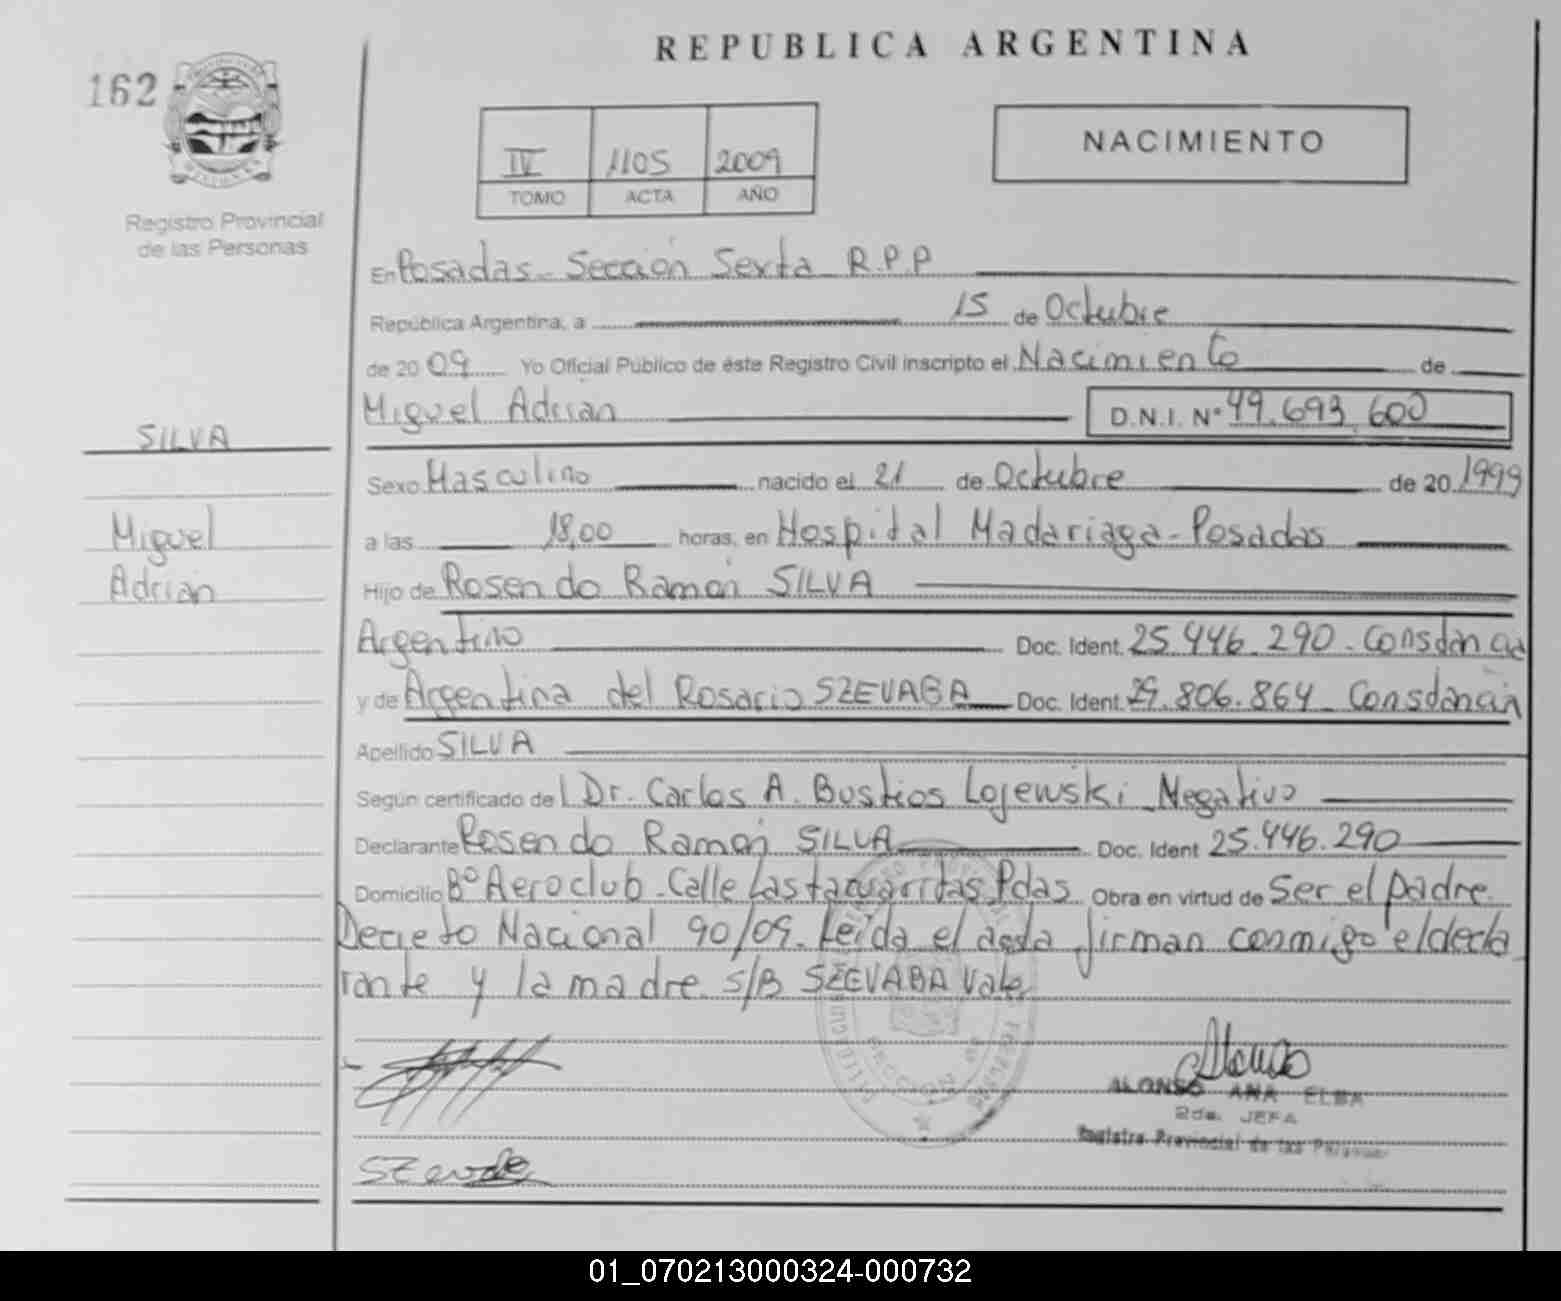 REPUBLICA ARGENTINA
162
IV 1105 2009
TOMO ACTA AÑO
NACIMIENTO
Registro Provincial
de las Personas
En Posadas - Sección Sexta R.P.P
República Argentina, a 15 de Octubre
de 20 09 Yo Oficial Público de éste Registro Civil inscripto el Nacimiento de
Miguel Adrian D.N.I. Nº 49.693.600
SILVA
Sexo Masculino nacido el 21 de Octubre de 20 1999
Miguel
a las 18,00 horas, en Hospital Madariaga - Posadas
Adrian
Hijo de Rosendo Ramón SILVA
Argentino Doc. Ident. 25.446.290 - Consdancia
y de Argentina del Rosario SZEVAGA Doc. Ident. 29.806.864 - Consdancia
Apellido SILVA
Según certificado del Dr. Carlos A. Bustios Lojewski - Negativo
Declarante Rosendo Ramón SILVA Doc. Ident 25.446.290
Domicilio Bº Aeroclub - Calle Las tacuaritas Pdas Obra en virtud de Ser el padre
Decreto Nacional 90/09. Leída el acta firman conmigo el decla
rante y la madre. S/B SZEVABA Vale
SECCION
ALONSO ANA ELBA
2da. JEFA
Registro Provincial de las Personas
01_070213000324-000732